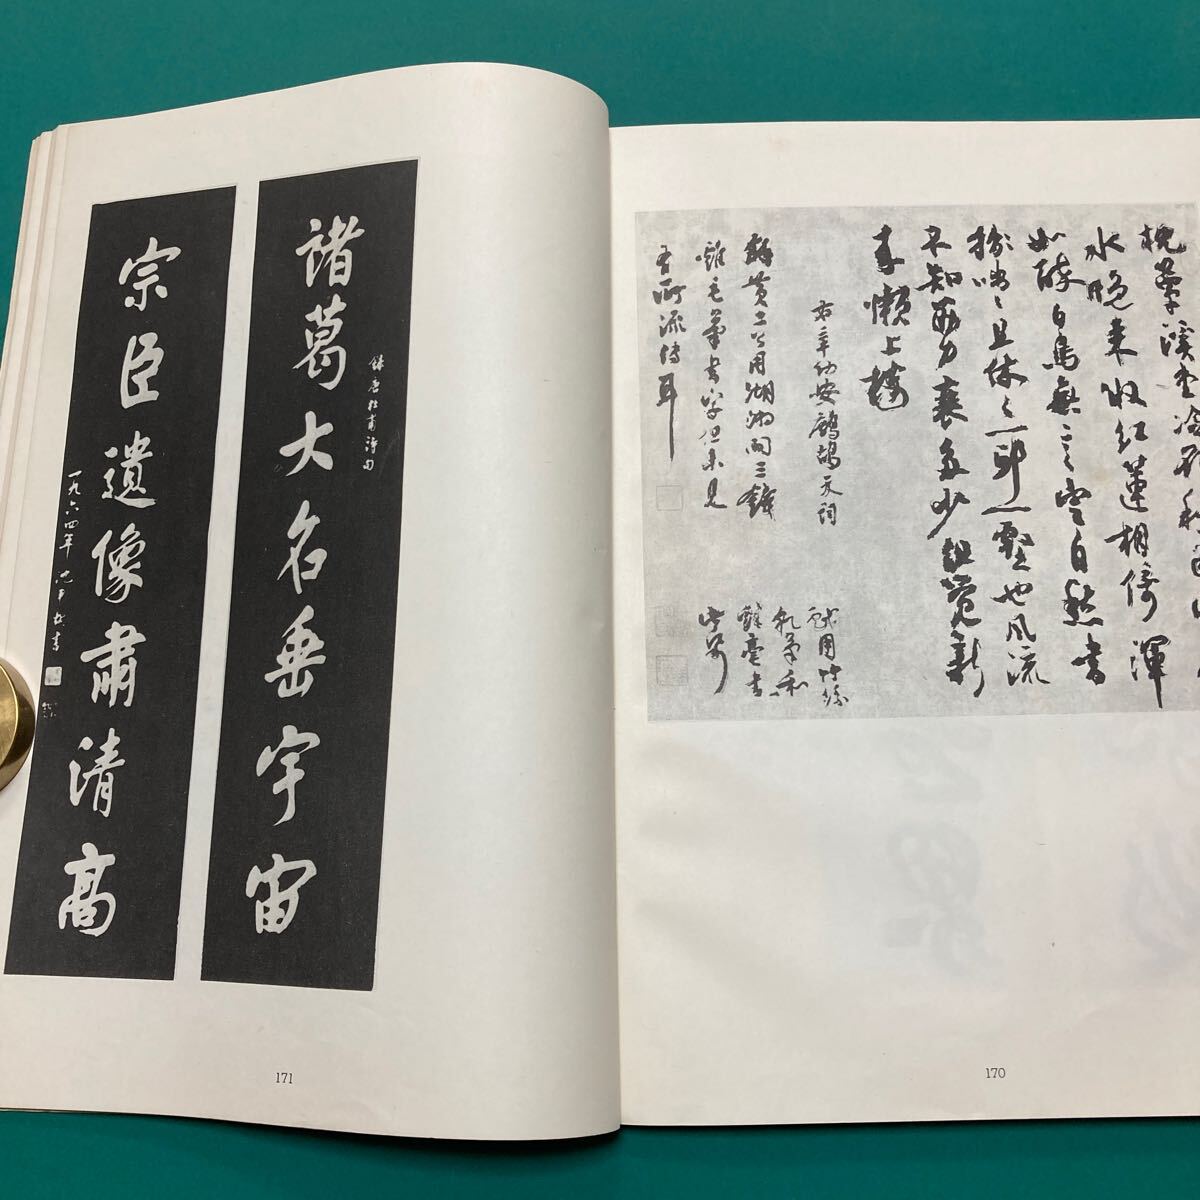 枕簟溪堂冷欲秋
水晚來收紅蓮相倚渾
如醉白鳥無言空自愁書
咄咄且休休一邱一壑也風流
不知筋力衰多少但覺新
來懶上樓
右辛幼安鷓鴣天詞
戲用竹絲
蘇黃二公用湖湘間三錢
雞毛筆書字但未見
流傳耳
170
諸葛大名垂宇宙
錄唐杜甫詩句
宗臣遺像肅清高
一九六四年 沈尹默書
171